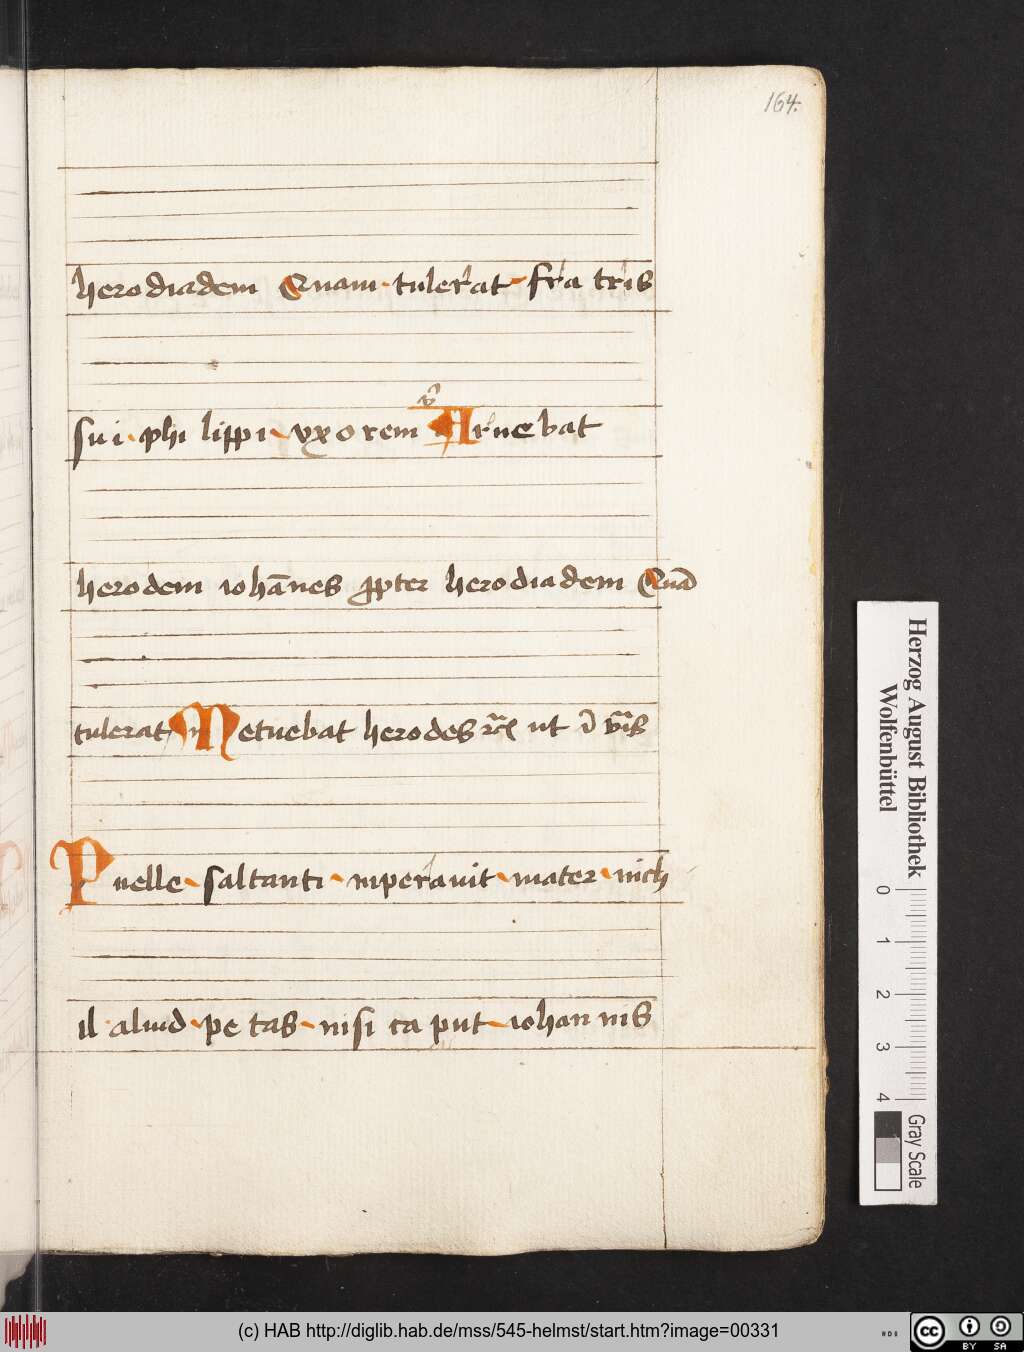 164.
herodiadem Quam tulerat fra tris
sui phi lippi vxo rem Arue bat
herodem iohānes ꝓpter herodiadem Quā
tulerat Metuebat herodes ut
Puelle saltanti inperauit mater nich
il aliud pe tas nisi ca put iohan nis
Herzog August Bibliothek
Wolfenbüttel
0 1 2 3 4
Gray Scale
(c) HAB http://diglib.hab.de/mss/545-helmst/start.htm?image=00331
cc BY SA